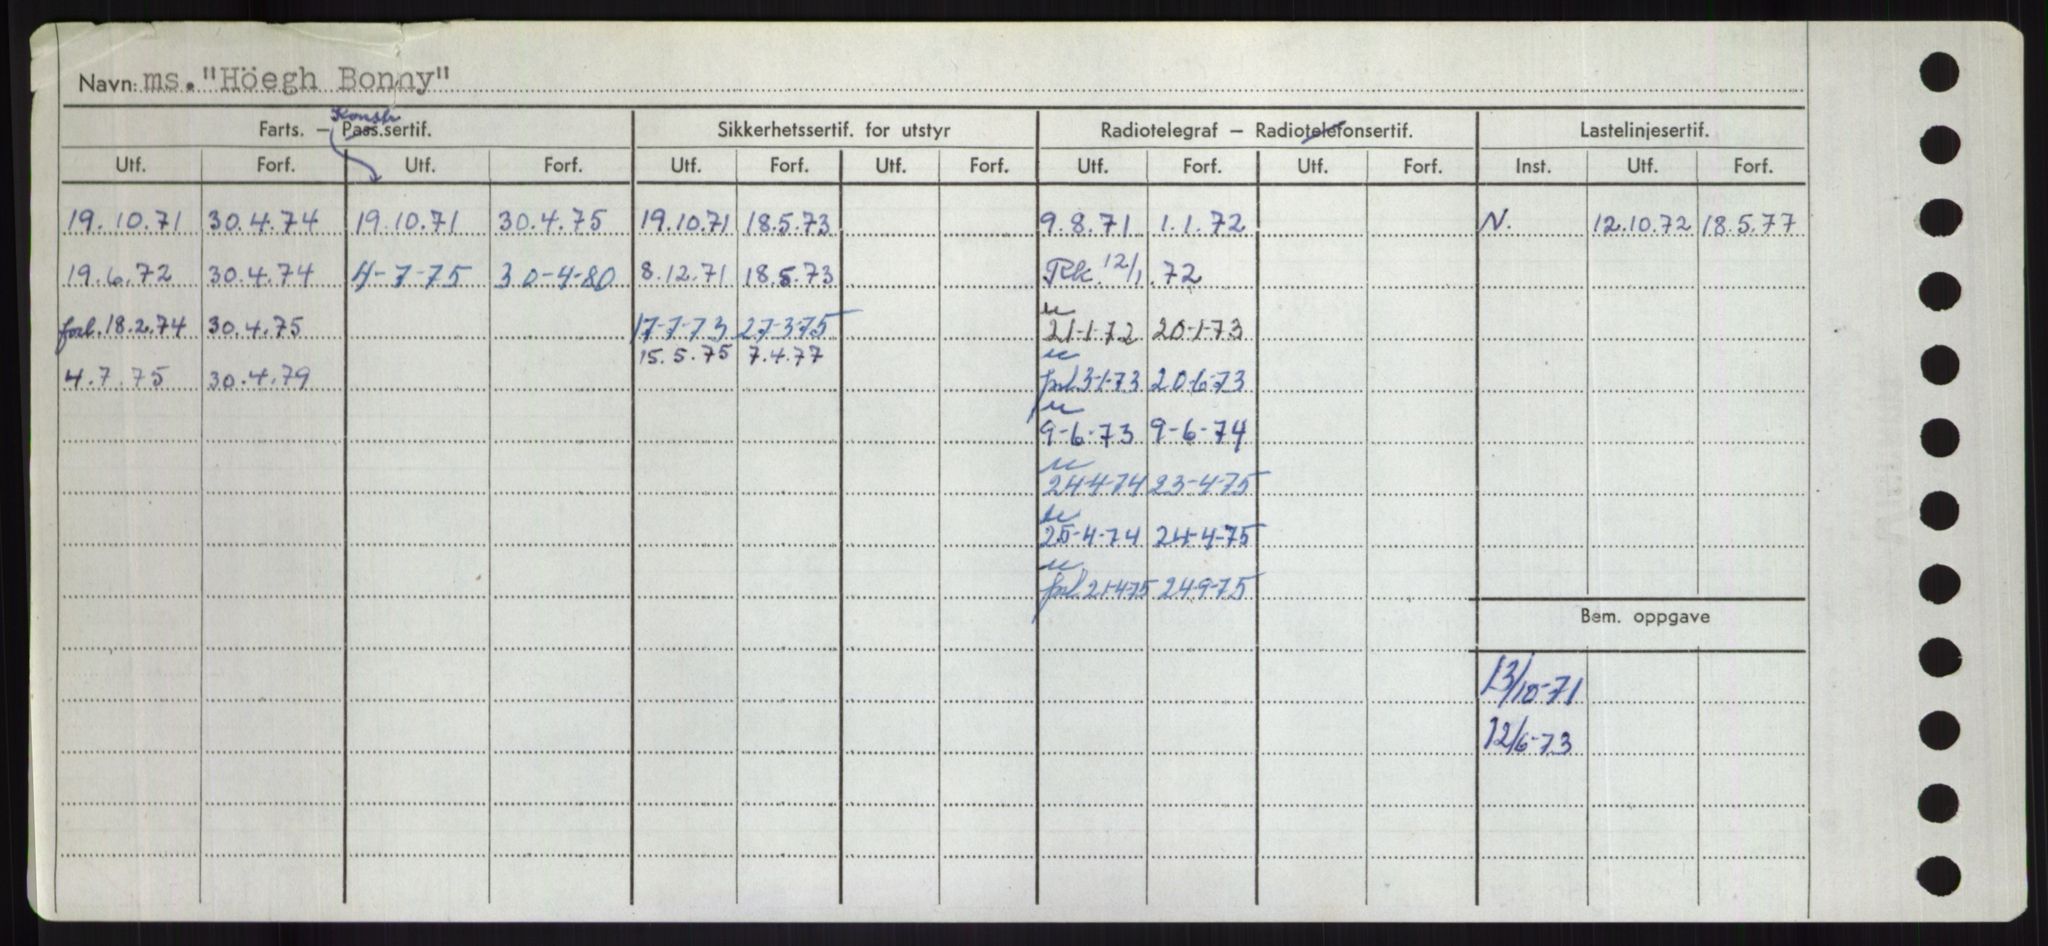 Navn: ms. "Höegh Bonny"
Konstr.
Farts. — Pass.sertif. Sikkerhetssertif. for utstyr Radiotelegraf — Radiotelefonsertif. Lastelinjesertif.
Utf. Forf. Utf. Forf. Utf. Forf. Utf. Forf. Utf. Forf. Utf. Forf. Inst. Utf. Forf.
19.10.71 30.4.74 19.10.71 30.4.75 19.10.71 18.5.73 9.8.71 1.1.72 N. 12.10.72 18.5.77
19.6.72 30.4.74 4-7-75 30-4-80 8.12.71 18.5.73 Rk. 12/1.72
forl. 18.2.74 30.4.75 17-7-73 27-3-75 21-1-72 20-1-73
15.5.75 7.4.77
4.7.75 30.4.79 forl. 3-1-73 20-6-73
9-6-73 9-6-74
24-4-74 23-4-75
25-4-74 24-4-75
forl. 21-4-75 24-9-75
Bem. oppgave
13/10-71
12/6-73